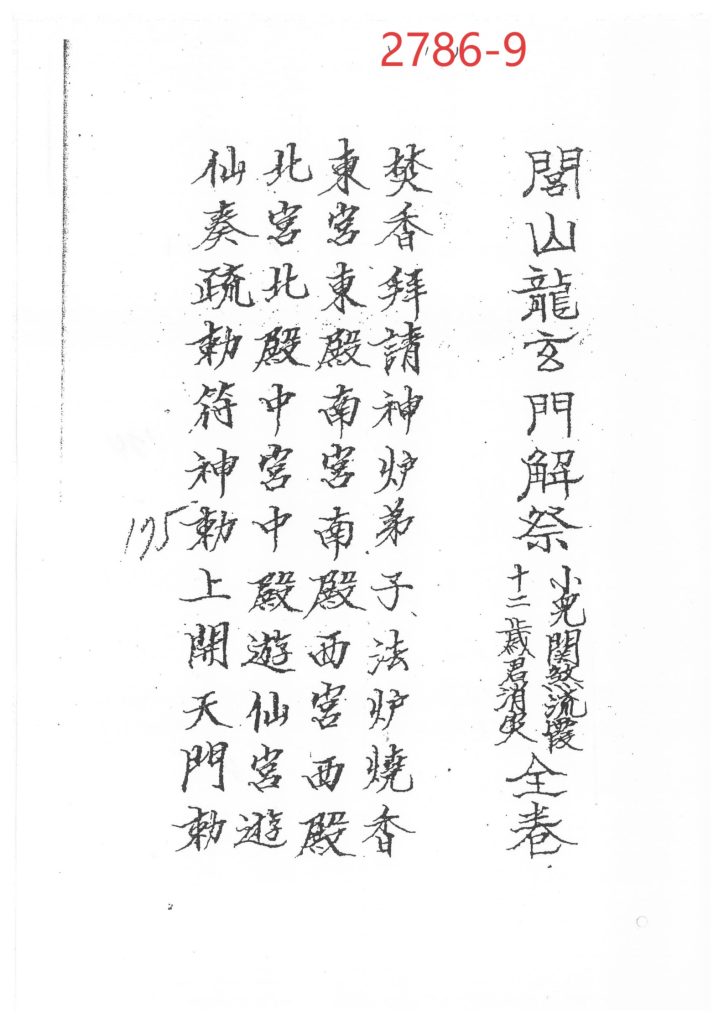 2786-9
閭山龍玄門解祭 小兒関煞流霞 十二歲君消灾 全卷
焚香拜請神炉弟子法炉燒香
東宮東殿南宮南殿西宮西殿
北宮北殿中宮中殿遊仙宮遊
仙奏疏勅符神勅上開天門勅
175